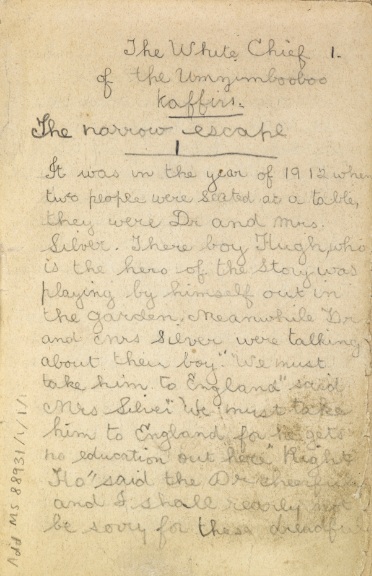 The White Chief 1.
of the Umzimbooboo
Kaffirs.
The narrow escape
1
It was in the year of 1912 when
two people were seated at a table,
they were Dr and Mrs.
Silver. There boy Hugh, who
is the hero of the story was
playing by himself out in
the garden, Meanwhile Dr
and Mrs Silver were talking
about their boy." We must
take him to England" said
Mrs Silver "We must take
him to England for he gets
no education out here" Right
Ho" said the Dr cheerfully
and I shall realy not
be sorry for these dreadful
Add MS 88931/1/1/1